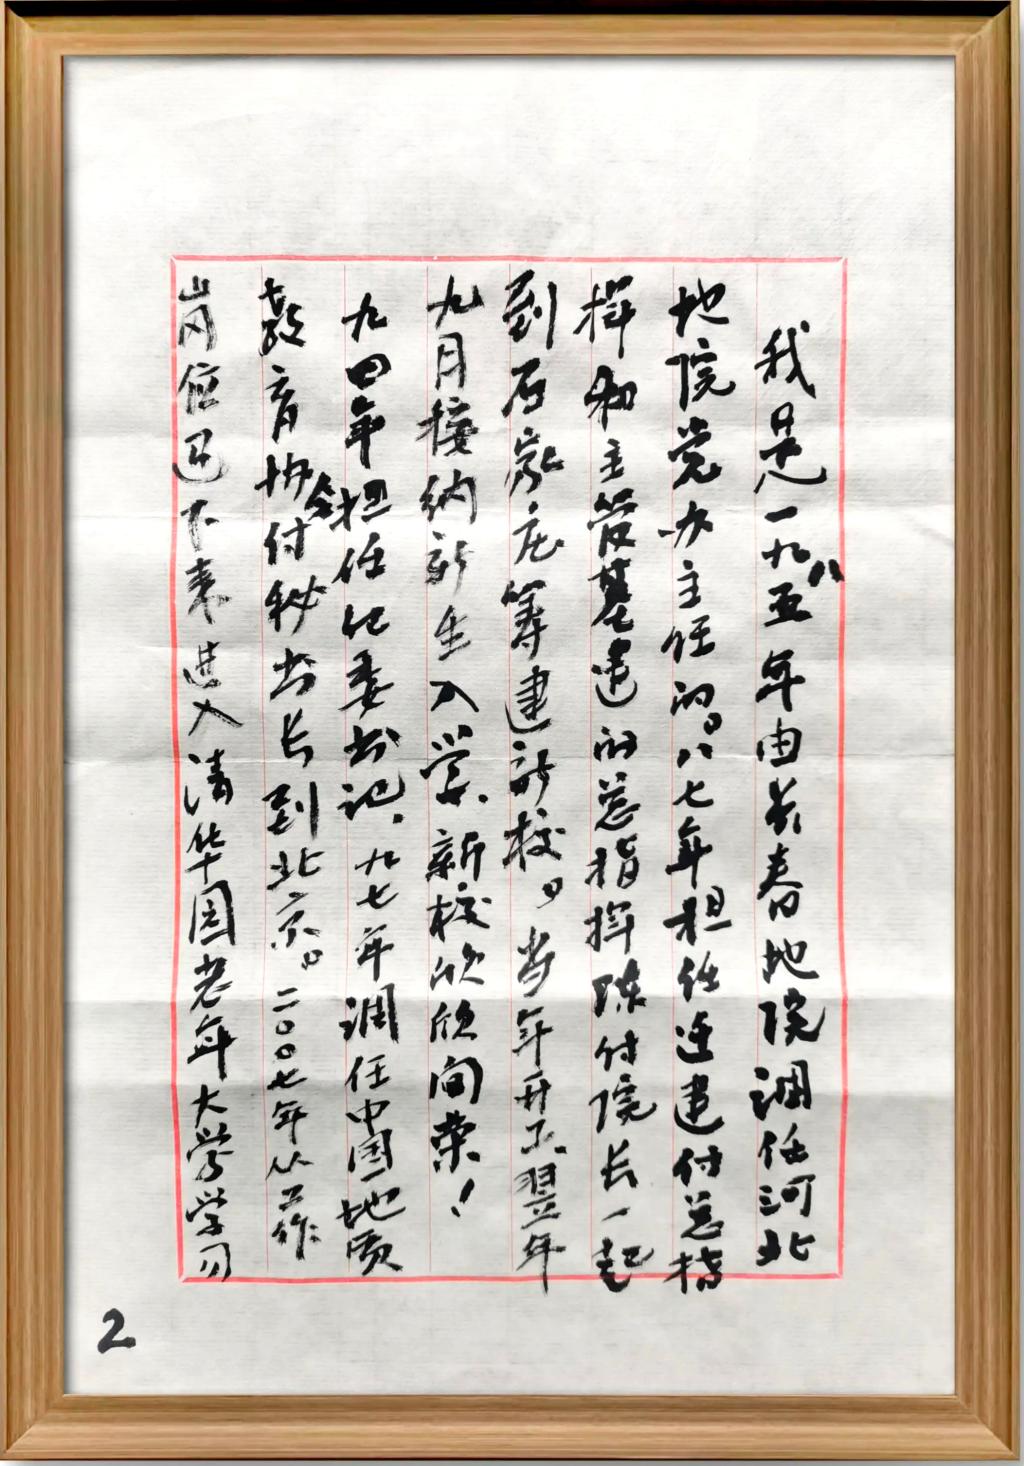 我是一九八五年由长春地院调任河北
地院党办主任的。八七年担任迁建付总指
挥和主管基建的总指挥陈付院长一起
到石家庄筹建新校。当年开工、翌年
九月接纳新生入学、新校欣欣向荣！
九四年担任纪委书记、九七年调任中国地质
教育协会付秘书长到北京。二〇〇七年从工作
岗位退下来进入清华园老年大学学习
2